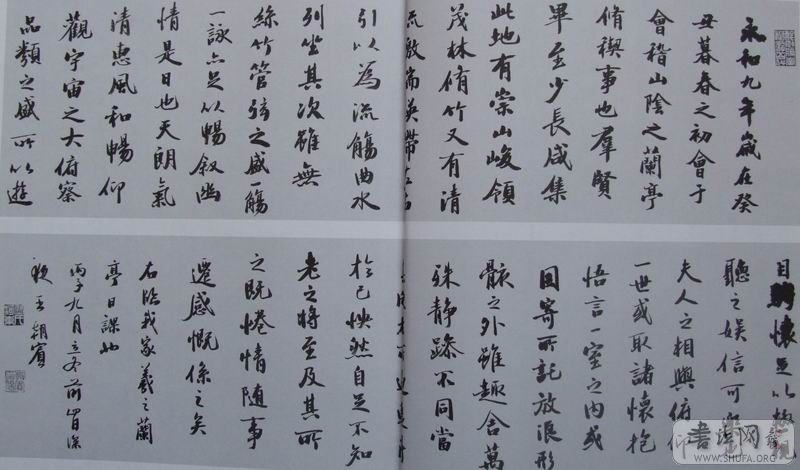 永和九年歲在癸
丑暮春之初會于
會稽山陰之蘭亭
脩稧事也羣賢
畢至少長咸集
此地有崇山峻領
茂林脩竹又有清
流激湍英帶左右
引以為流觴曲水
列坐其次雖無
絲竹管弦之盛一觴
一詠亦足以暢叙幽
情是日也天朗氣
清惠風和暢仰
觀宇宙之大俯察
品類之盛所以遊
目騁懷足以極
聽之娱信可樂
夫人之相與俯仰
一世或取諸懷抱
悟言一室之内或
因寄所託放浪形
骸之外雖趣舍萬
殊静躁不同當
於己怏然自足不知
老之將至及其所
之既惓情隨事
遷感慨係之矣
右臨我家羲之蘭
亭日課也
丙子九月立冬前
王朝賓
書法网
WWW.SHUFA.ORG